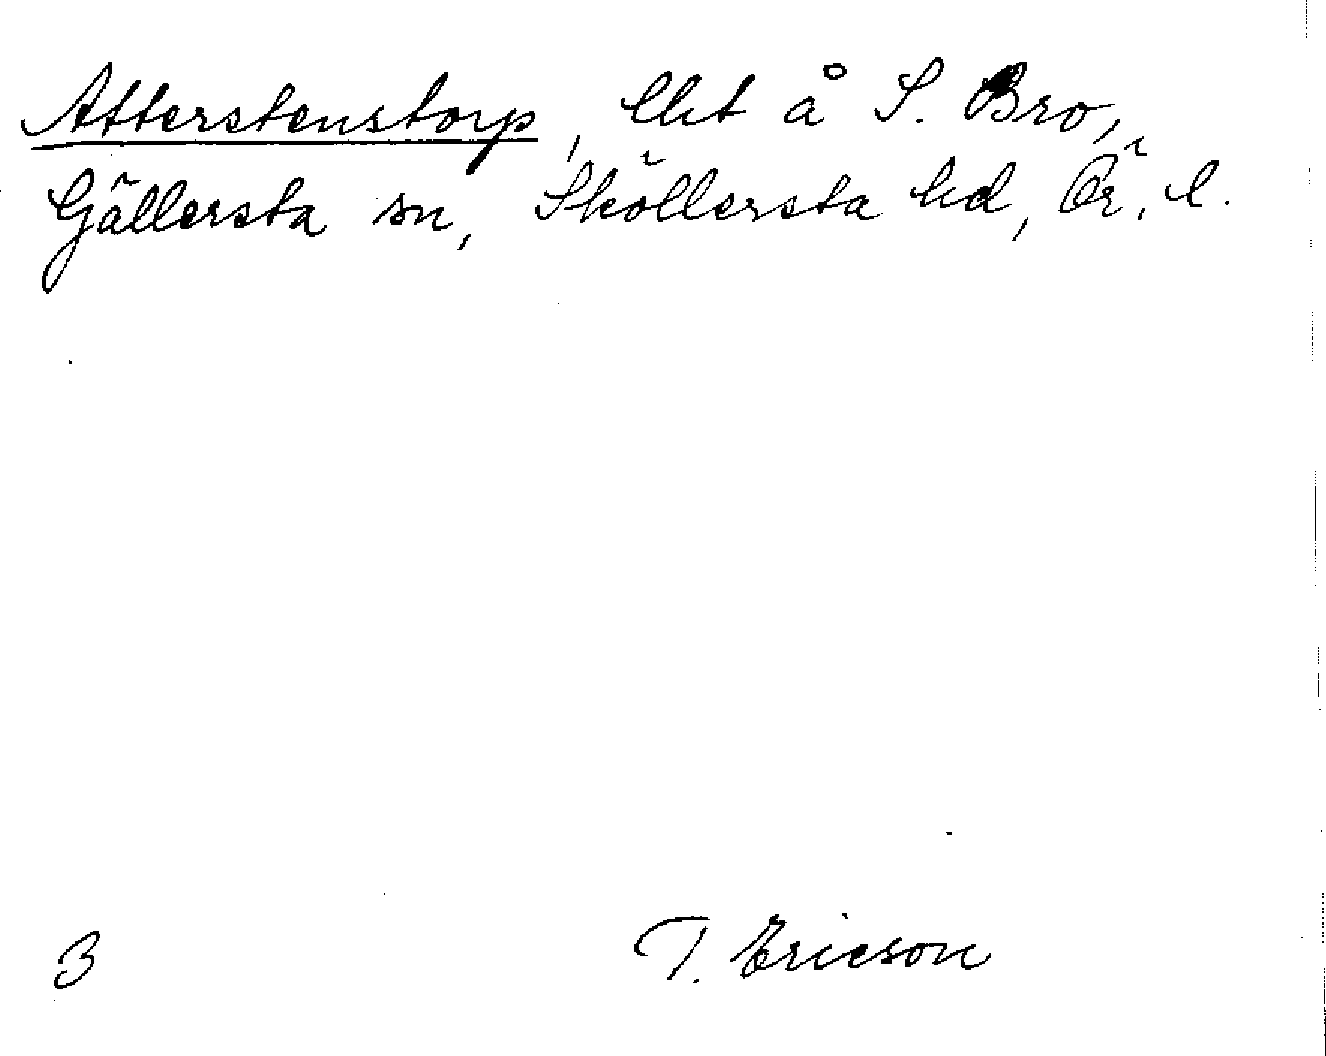 Atterstenstorp, lht å S. Bro,
Gällersta sn, Sköllersta hd, Ör. l.
3 T. Ericson